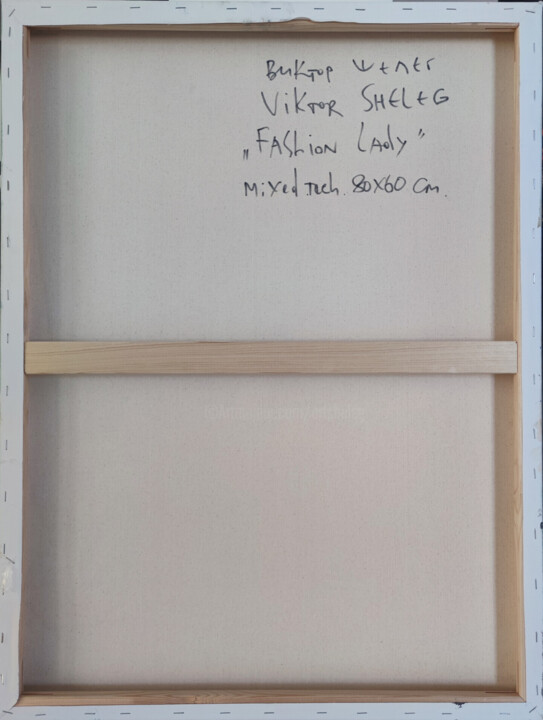 Виктор Шелег
Viktor SHELEG
„Fashion Lady”
Mixed tech. 80x60 cm.